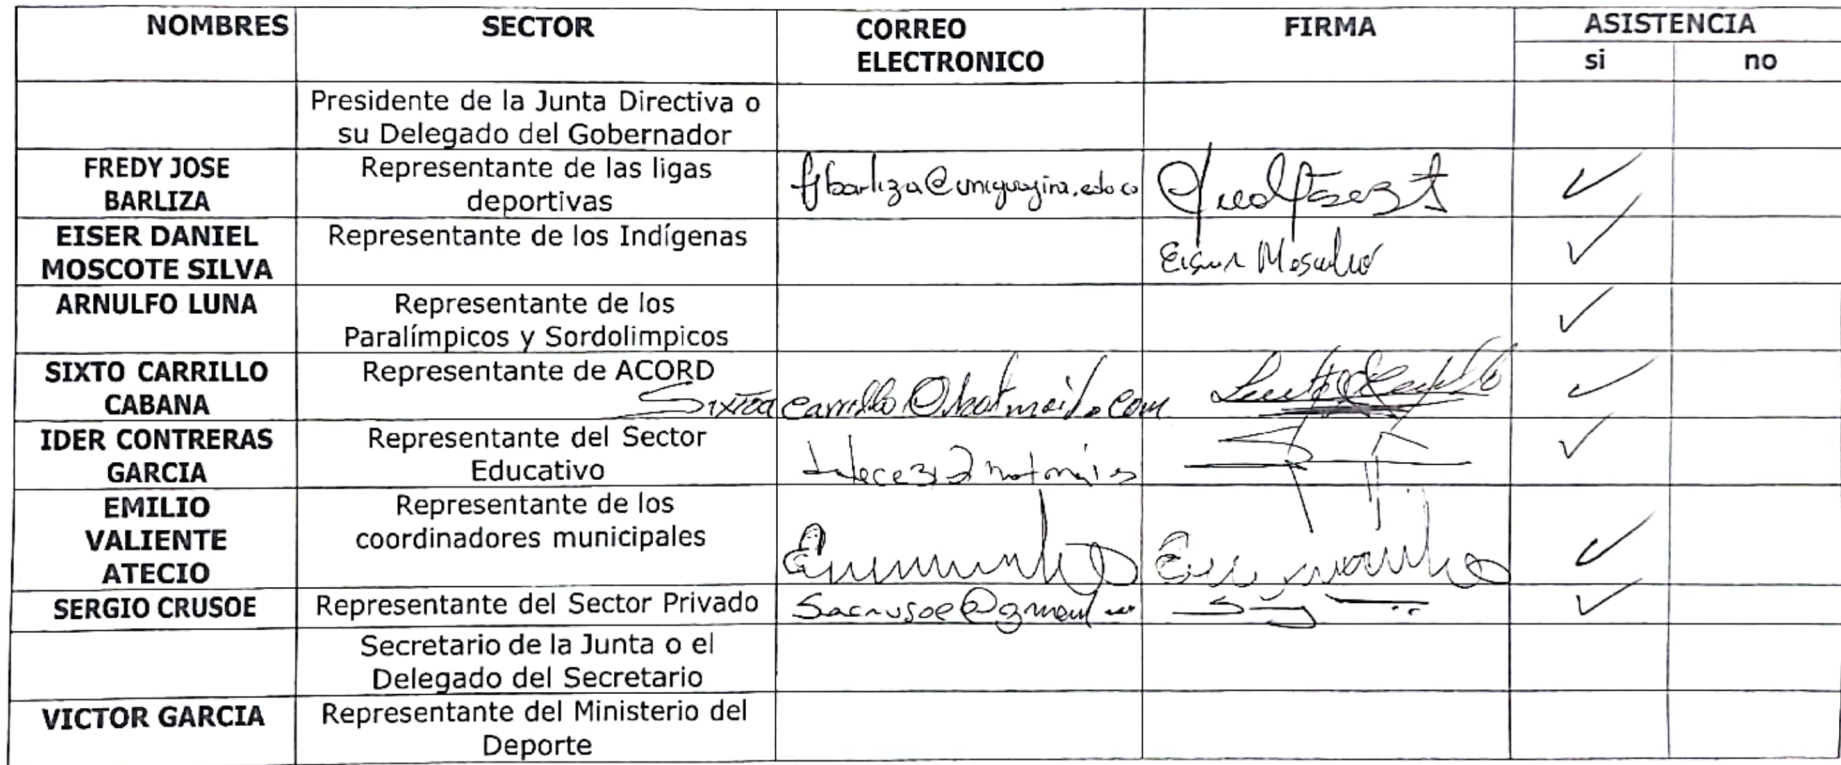 NOMBRES SECTOR CORREO ELECTRONICO FIRMA ASISTENCIA
si no
Presidente de la Junta Directiva o
su Delegado del Gobernador
FREDY JOSE
BARLIZA
Representante de las ligas
deportivas
fjbarliza@uniguajira.edu.co
EISER DANIEL
MOSCOTE SILVA
Representante de los Indígenas
ARNULFO LUNA
Representante de los
Paralímpicos y Sordolimpicos
SIXTO CARRILLO
CABANA
Representante de ACORD
Sixtoacarrillo@hotmail.com
IDER CONTRERAS
GARCIA
Representante del Sector
Educativo
EMILIO
VALIENTE
ATECIO
Representante de los
coordinadores municipales
SERGIO CRUSOE
Representante del Sector Privado
Secretario de la Junta o el
Delegado del Secretario
VICTOR GARCIA
Representante del Ministerio del
Deporte